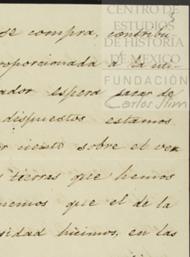 CENTRO DE
ESTUDIOS
DE HISTORIA
DE MÉXICO
FUNDACIÓN
Carlos Slim
se compra, contribu
proporcionada á la uti
ador espera
dispuestos estamos
ciento sobre el
tierras que hemos
nemos que el de la
sidad hicimos, en las